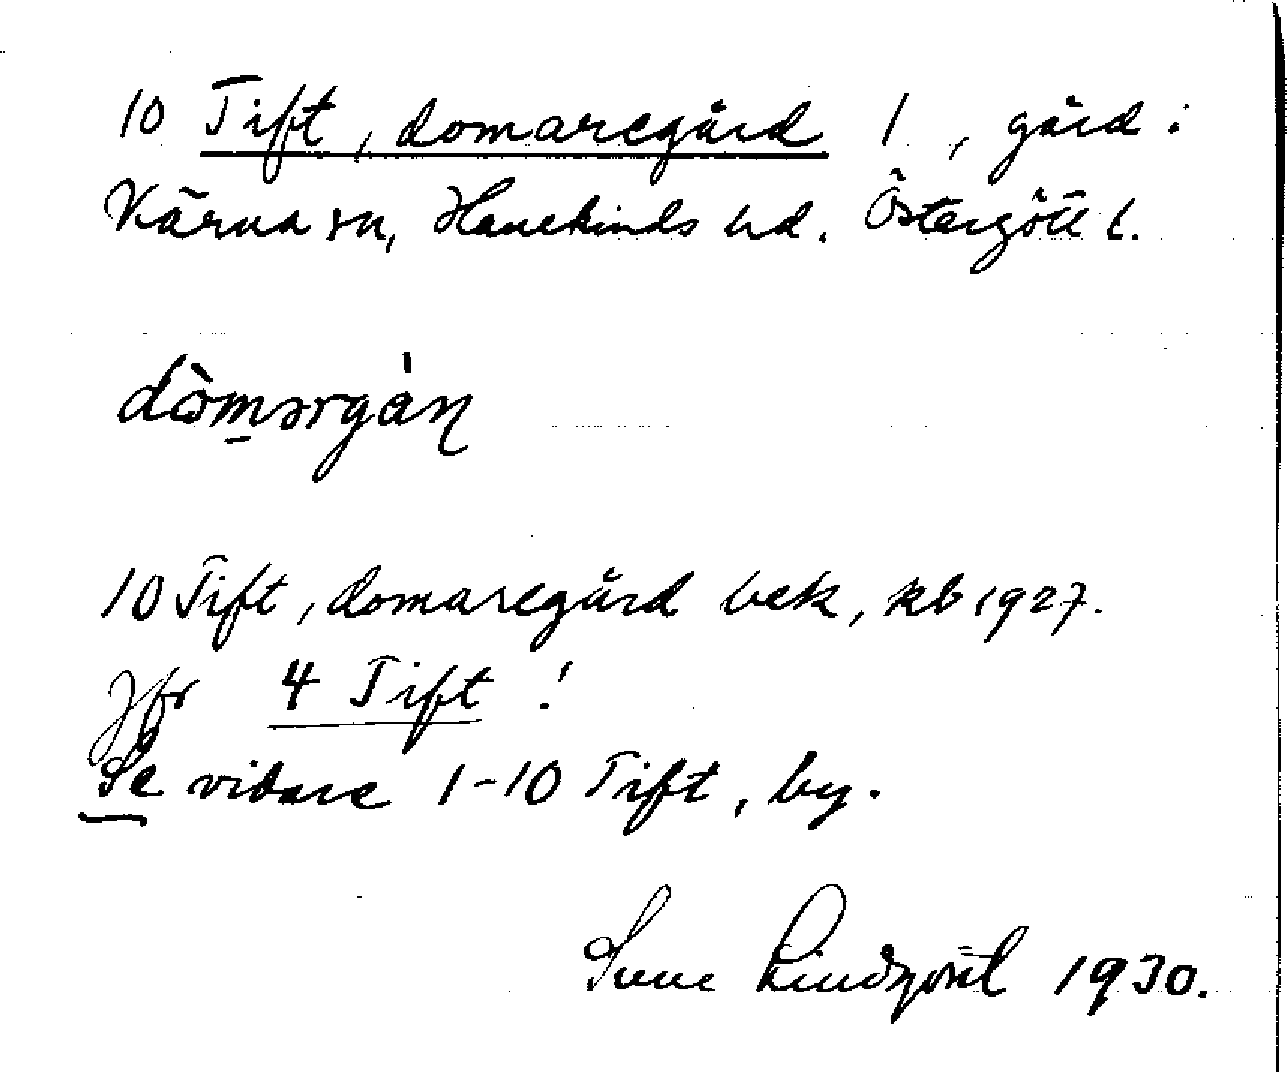 10 Tift, domaregård 1, gård i
Kärna sn, Hanekinds hd. Östergötl l.
dòmərgàɳ
10 Tift, domaregård bek, kb 1927.
Jfr 4 Tift!
Se vidare 1-10 Tift, by.
Sune Lindqvist 1930.